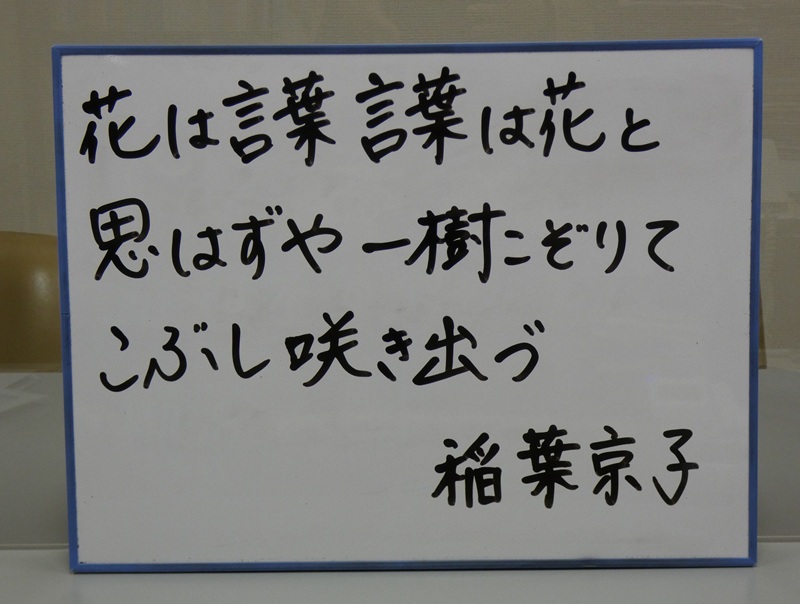 花は言葉 言葉は花と
思はずや一樹こぞりて
こぶし咲き出づ
稲葉京子